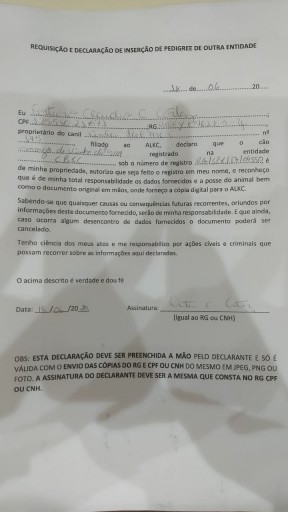 REQUISIÇÃO E DECLARAÇÃO DE INSERÇÃO DE PEDIGREE DE OUTRA ENTIDADE
de 06 20
Eu
CPF RG
proprietário do canil nº
filiado ao ALKC, declaro que o cão
registrado na entidade
CBKC sob o número de registro é
de minha propriedade, autorizo que seja feito o registro em meu nome, e reconheço
que é de minha total responsabilidade os dados fornecidos e a posse do animal bem
como o documento original em mãos, onde forneço a cópia digital para o ALKC.
Sabendo-se que quaisquer causas ou consequências futuras recorrentes, oriundos por
informações deste documento fornecido, serão de minha responsabilidade. E que ainda,
caso ocorra algum desencontro de dados fornecidos o documento poderá ser
cancelado.
Tenho ciência dos meus atos e me responsabilizo por ações cíveis e criminais que
possam recorrer sobre as informações aqui declaradas.
O acima descrito é verdade e dou fé
Data: /06/20 Assinatura:
(Igual ao RG ou CNH)
OBS: ESTA DECLARAÇÃO DEVE SER PREENCHIDA A MÃO PELO DECLARANTE E SÓ É
VÁLIDA COM O ENVIO DAS CÓPIAS DO RG E CPF OU CNH DO MESMO EM JPEG, PNG OU
FOTO. A ASSINATURA DO DECLARANTE DEVE SER A MESMA QUE CONSTA NO RG CPF
OU CNH.